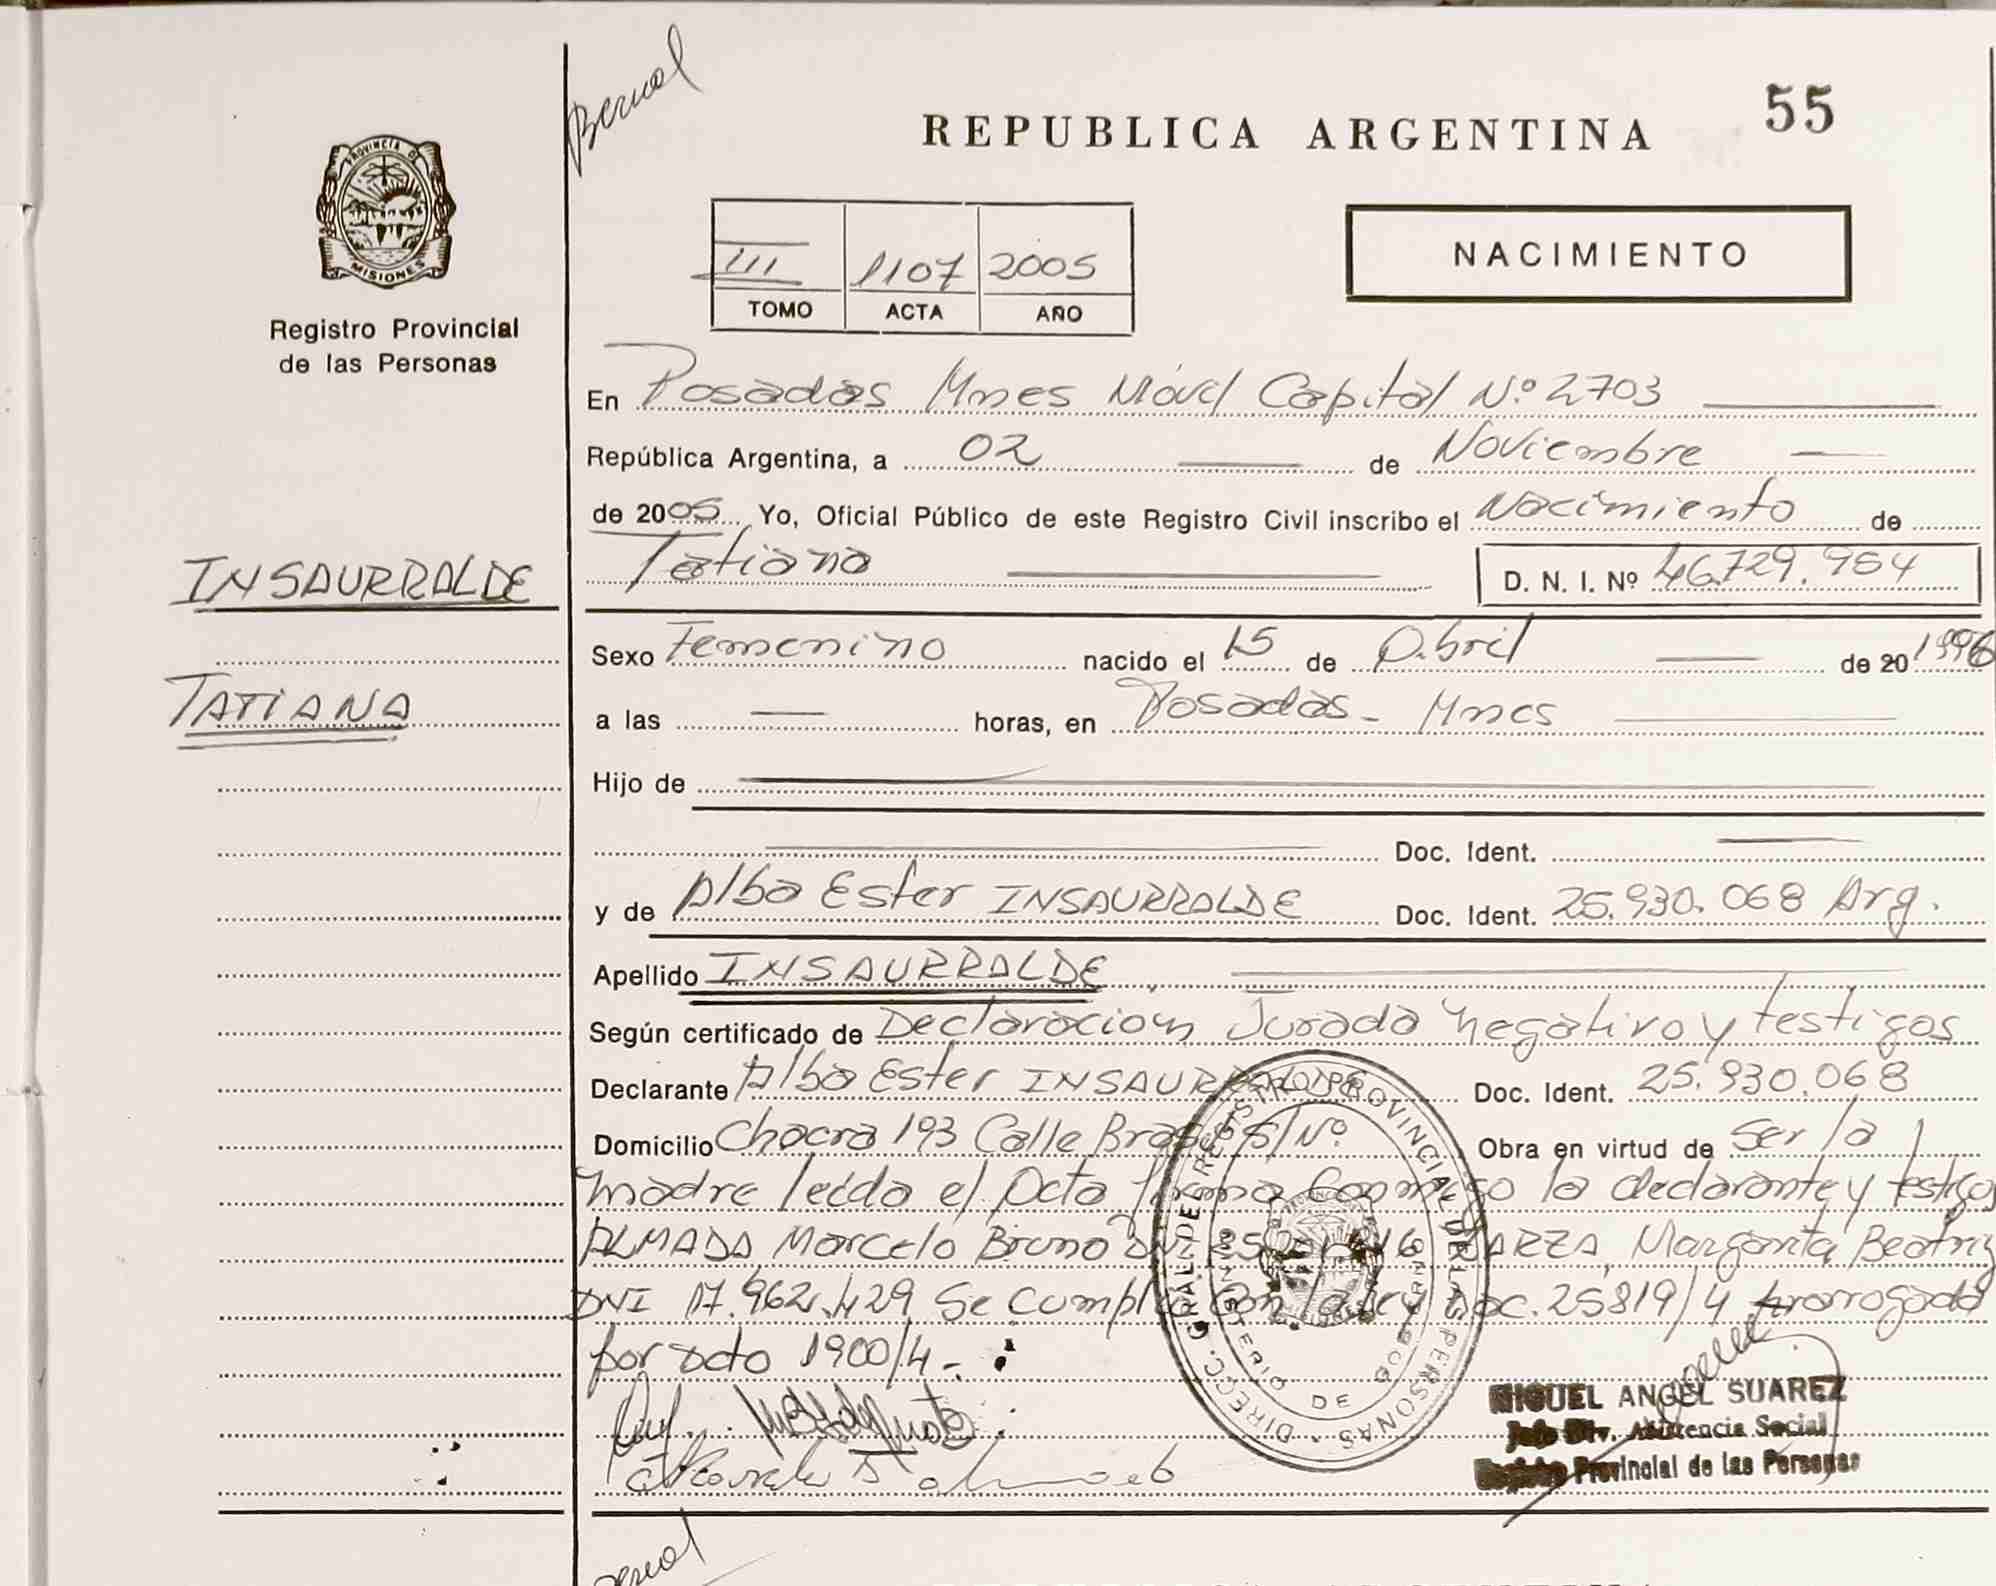 Bernal
REPUBLICA ARGENTINA 55
PROVINCIA DE
MISIONES
Registro Provincial
de las Personas
III 1107 2005
TOMO ACTA AÑO
NACIMIENTO
En Posadas Mnes Móvil Capital Nº 2703
República Argentina, a 02 de Noviembre
de 2005 Yo, Oficial Público de este Registro Civil inscribo el Nacimiento de
Tatiana D. N. I. Nº 46.729.954
INSAURRALDE
TATIANA
Sexo Femenino nacido el 15 de Abril de 20 1996
a las horas, en Posadas - Mnes
Hijo de
Doc. Ident.
y de Alba Ester INSAURRALDE Doc. Ident. 25.930.068 Arg.
Apellido INSAURRALDE
Según certificado de Declaración Jurada Negativo y testigos
Declarante Alba Ester INSAURRALDE Doc. Ident. 25.930.068
Domicilio Chacra 193 Calle S/Nº Obra en virtud de Ser la
madre leida el Acta firma Conmigo la declarante y testigos
ALMADA Marcelo Bruno Margarita Beatriz
DNI 17.962.429 Se cumple Con 25819/4 prorrogado
por dcto 1900/4.-
DIRECC. GRAL. DE REGISTRO PROVINCIAL DE LAS PERSONAS
MINISTERIO DE GOBIERNO
MIGUEL ANGEL SUAREZ
Jefe Div. Asistencia Social
Registro Provincial de las Personas